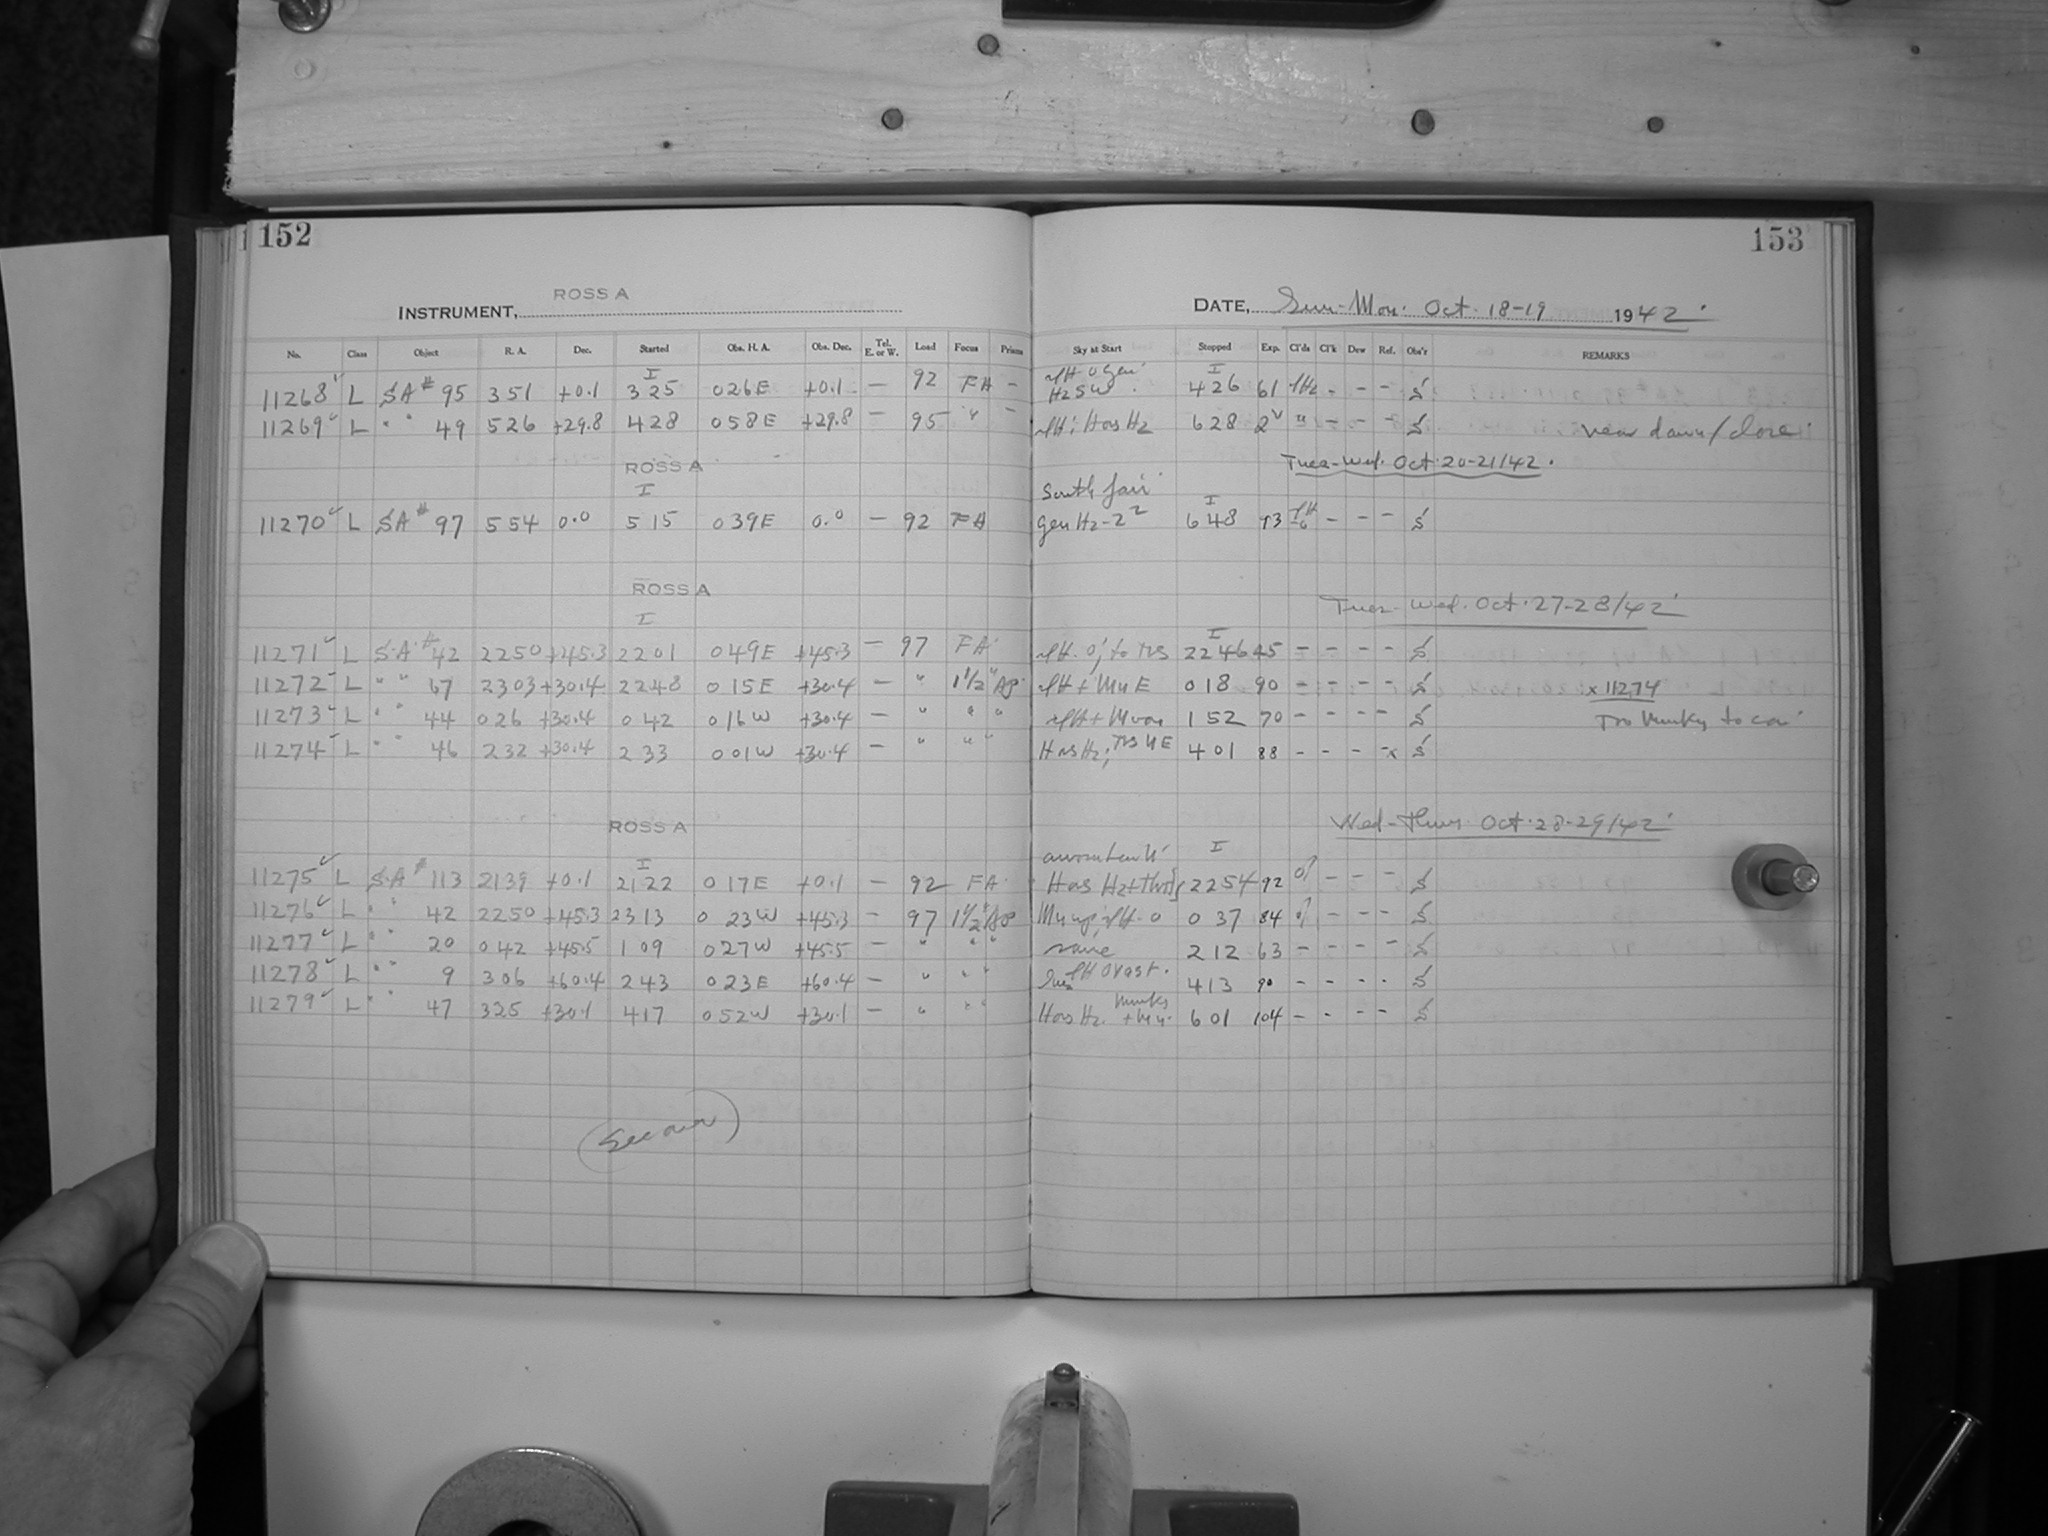 152
153
ROSS A
INSTRUMENT,
DATE, Sun-Mon. Oct. 18-19 1942
No. Class Object R. A. Dec. Started Obs. H. A. Obs. Dec. Tel. E. or W. Load Focus Prisms Sky at Start Stopped Exp. Cl'ds Cl'k Dew Ref. Obs'r REMARKS
I I
11268 L SA# 95 351 +0.1 325 026E +0.1 - 92 FA - Hz SW 426 61 - - -
11269 L " " 49 526 +29.8 428 058E +29.8 - 95 " - Has Hz 628 " - - - near dawn/close
ROSS A Tues-Wed. Oct. 20-21/42.
I South fair I
11270 L SA# 97 554 0.0 515 039E 0.0 - 92 FA gen Hz-2² 648 93 - - -
ROSS A Tues-Wed. Oct. 27-28/42
I I
11271 L SA# 42 2250 +45.3 2201 049E +45.3 - 97 FA 2246 45 - - - -
11272 L " " 67 2303 +30.4 2248 015E +30.4 - " 1½" Ap. 018 90 - - - - x 11274
11273 L " " 44 026 +30.4 042 016W +30.4 - " " " 152 70 - - - - Too
11274 L " " 46 232 +30.4 233 001W +30.4 - " " " Has Hz; 401 88 - - - -x
ROSS A Wed-Thurs. Oct. 28-29/42
I I
11275 L SA# 113 2139 +0.1 2122 017E +0.1 - 92 FA Has Hz 2254 92 - - -
11276 L " " 42 2250 +45.3 2313 0 23W +45.3 - 97 1½" Ap 037 84 - - -
11277 L " " 20 042 +45.5 109 027W +45.5 - " " " same 212 63 - - - -
11278 L " " 9 306 +60.4 243 023E +60.4 - " " " 413 90 - - - -
11279 L " " 47 325 +30.1 417 052W +30.1 - " " " Has Hz. 601 104 - - - -